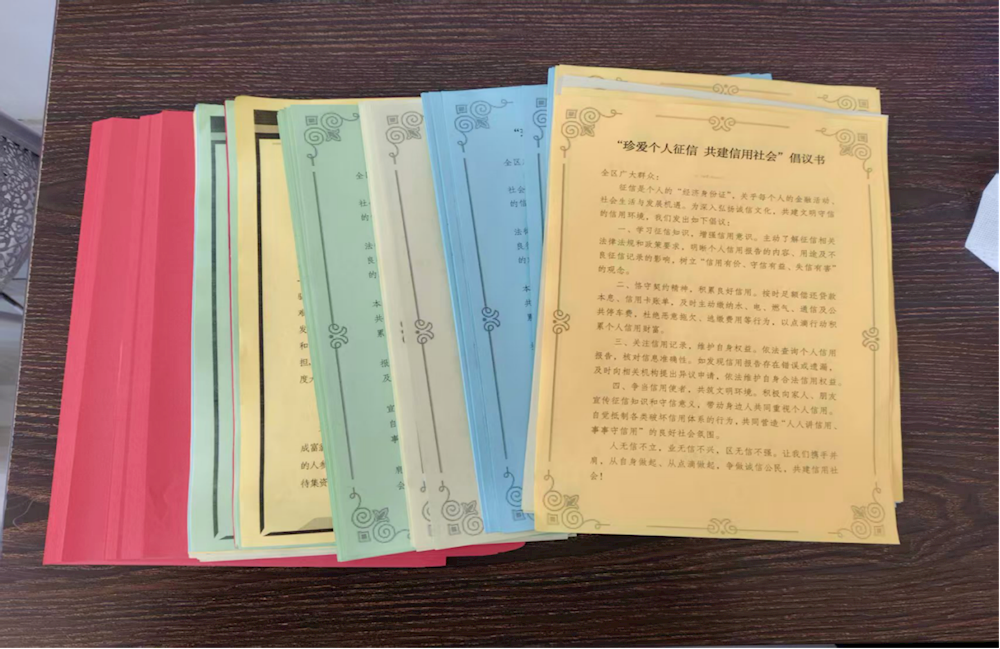 难
发
和
但
度
成富
的人参
待集资
全
社会
的信
法
良
的
本
共
累
及
宣
自
事
会
全区
社会
的信
法律
良
的
“珍爱个人征信 共建信用社会”倡议书
全区广大群众：
征信是个人的“经济身份证”，关乎每个人的金融活动、
社会生活与发展机遇。为深入弘扬诚信文化，共建文明守信
的信用环境，我们发出如下倡议：
一、学习征信知识，增强信用意识。主动了解征信相关
法律法规和政策要求，明晰个人信用报告的内容、用途及不
良征信记录的影响，树立“信用有价、守信有益、失信有害”
的观念。
二、恪守契约精神，积累良好信用。按时足额偿还贷款
本息、信用卡账单，及时主动缴纳水、电、燃气、通信及公
共停车费，杜绝恶意拖欠、逃缴费用等行为，以点滴行动积
累个人信用财富。
三、关注信用记录，维护自身权益。依法查询个人信用
报告，核对信息准确性。如发现信用报告存在错误或遗漏，
及时向相关机构提出异议申请，依法维护自身合法信用权益。
四、争当信用使者，共筑文明环境。积极向家人、朋友
宣传征信知识和守信意义，带动身边人共同重视个人信用。
自觉抵制各类破坏信用体系的行为，共同营造“人人讲信用、
事事守信用”的良好社会氛围。
人无信不立，业无信不兴，区无信不强。让我们携手并
肩，从自身做起、从点滴做起，争做诚信公民，共建信用社
会！